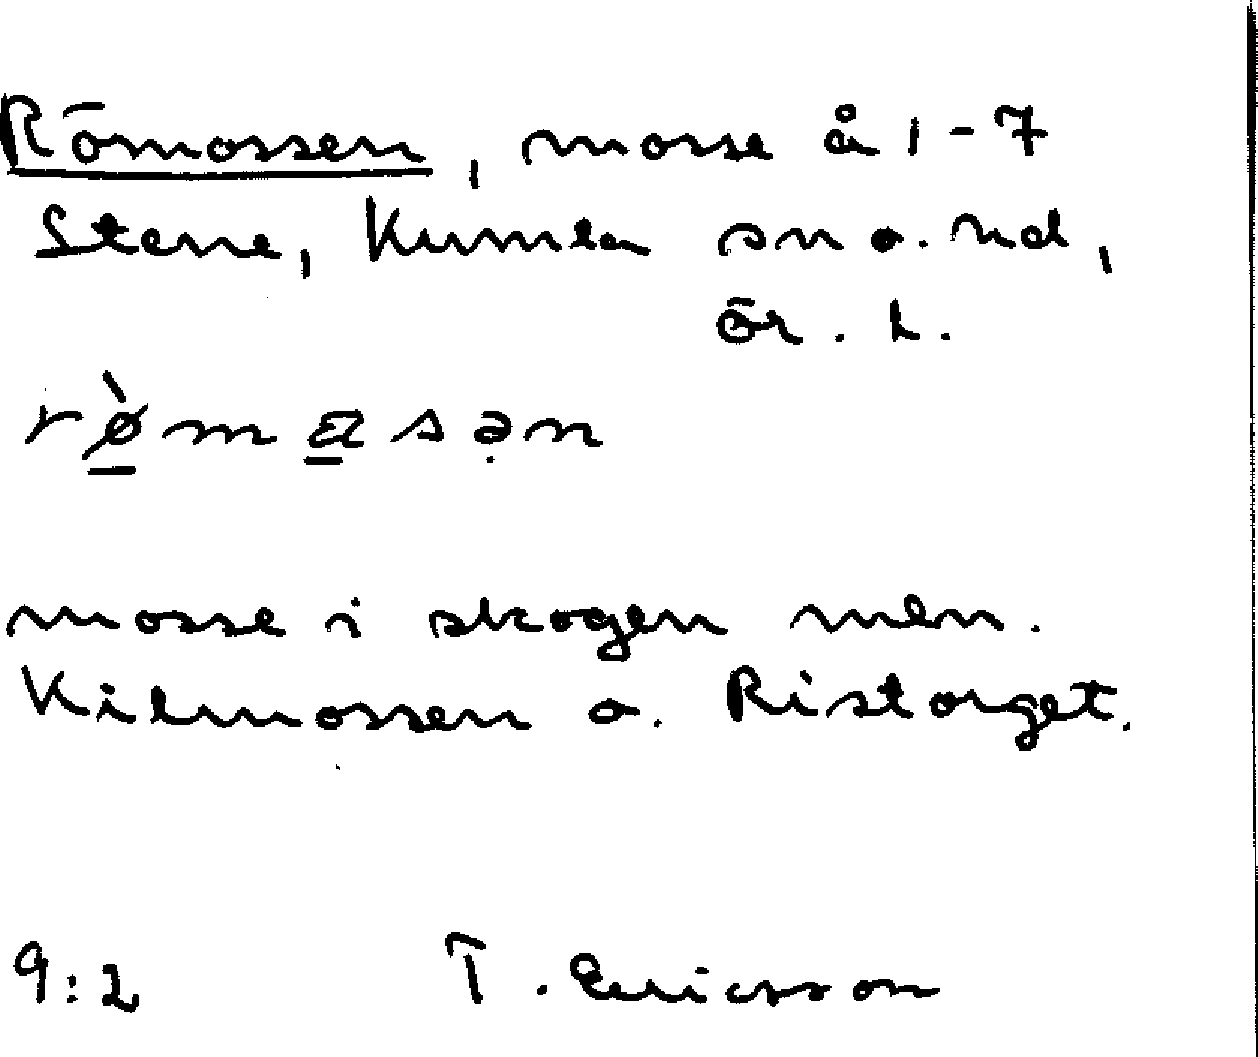 Römossen, mosse å 1-7
Stene, Kumla sn o. hd,
Ör. l.
rø̀masən
mosse i skogen mln.
Kilmossen o. Ristorget.
9:2 T. Ericsson